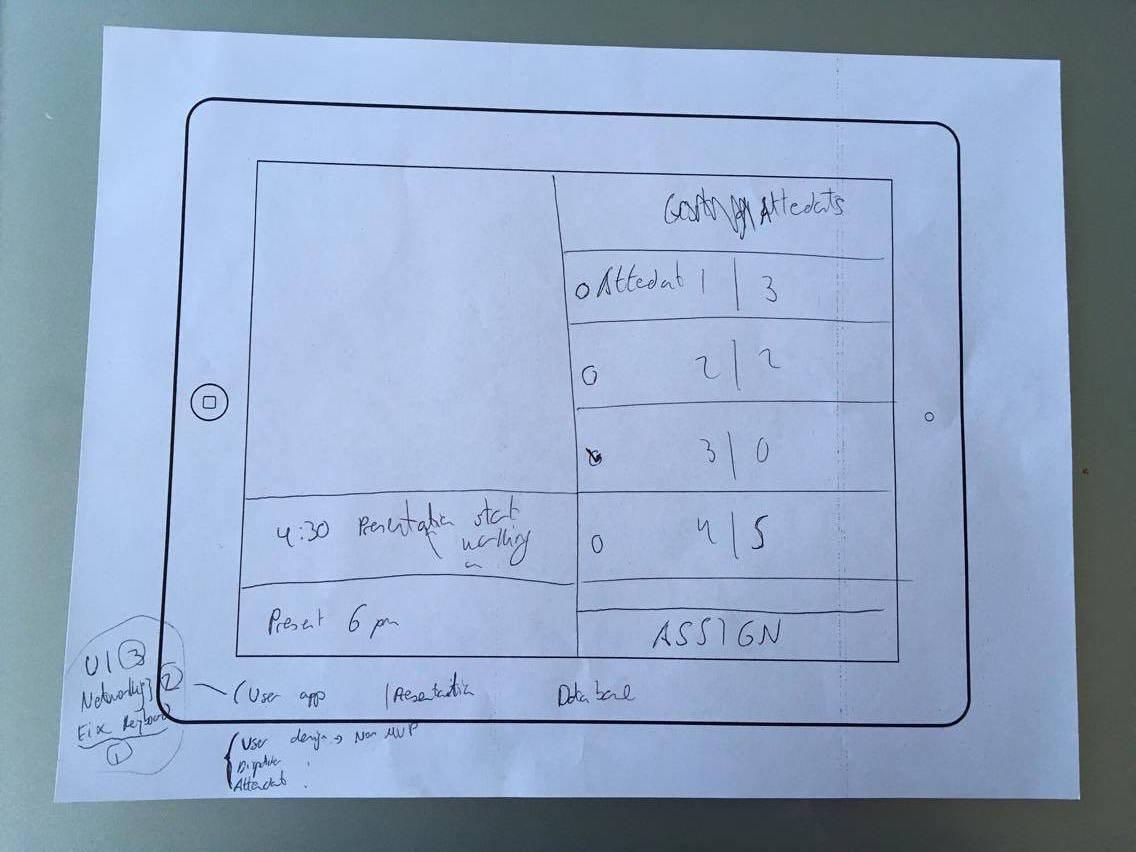 Attedats
Attedat 1 | 3
2 | 2
3 | 0
4 | 5
ASSIGN
4:30 Presentation start
walking
Present 6 pm
UI 3
Networking 2
Fix Keyboard
1
(User app | Presentation Database
User design → Non MVP
Attedat